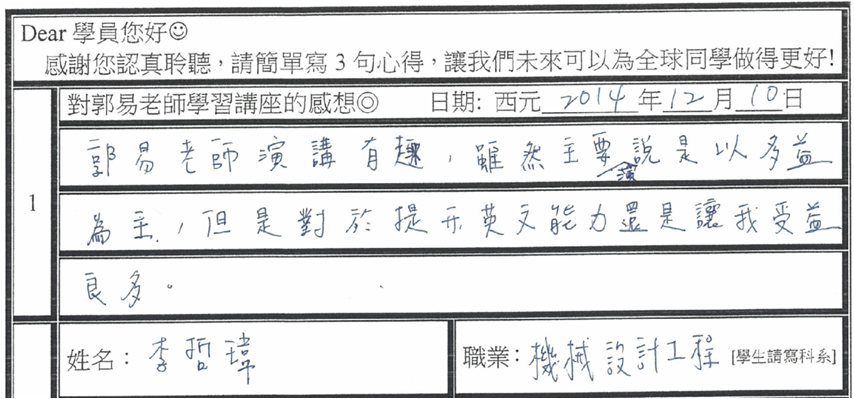 Dear 學員您好☺
感謝您認真聆聽，請簡單寫 3 句心得，讓我們未來可以為全球同學做得更好!
1
對郭易老師學習講座的感想◎ 日期: 西元 2014 年 12 月 10 日
郭易老師演講有趣，雖然主要演說是以多益
為主，但是對於提升英文能力還是讓我受益
良多。
姓名：李哲瑋 職業：機械設計工程 [學生請寫科系]